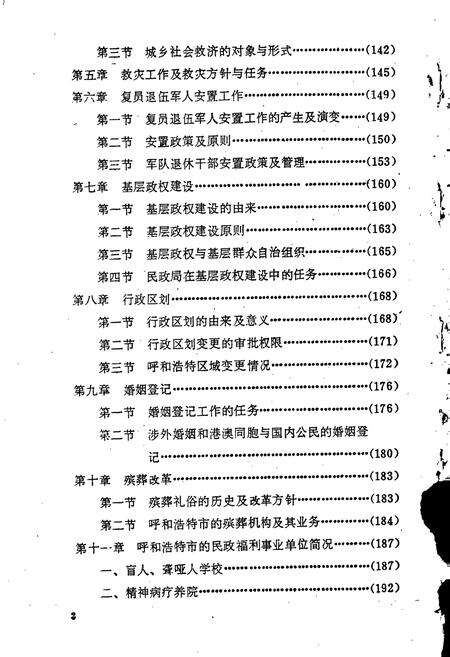 第三节 城乡社会救济的对象与形式………………(142)
第五章 救灾工作及救灾方针与任务………………(145)
第六章 复员退伍军人安置工作………………(149)
第一节 复员退伍军人安置工作的产生及演变……(149)
第二节 安置政策及原则………………(150)
第三节 军队退休干部安置政策及管理………………(153)
第七章 基层政权建设………………(160)
第一节 基层政权建设的由来………………(160)
第二节 基层政权建设原则………………(163)
第三节 基层政权与基层群众自治组织………………(165)
第四节 民政局在基层政权建设中的任务…………(166)
第八章 行政区划………………(168)
第一节 行政区划的由来及意义………………(168)
第二节 行政区划变更的审批权限………………(171)
第三节 呼和浩特区域变更情况………………(172)
第九章 婚姻登记………………(176)
第一节 婚姻登记工作的任务………………(176)
第二节 涉外婚姻和港澳同胞与国内公民的婚姻登
记………………(180)
第十章 殡葬改革………………(183)
第一节 殡葬礼俗的历史及改革方针………………(183)
第二节 呼和浩特市的殡葬机构及其业务…………(184)
第十一章 呼和浩特市的民政福利事业单位简况……(187)
一、盲人、聋哑人学校………………(187)
二、精神病疗养院………………(192)